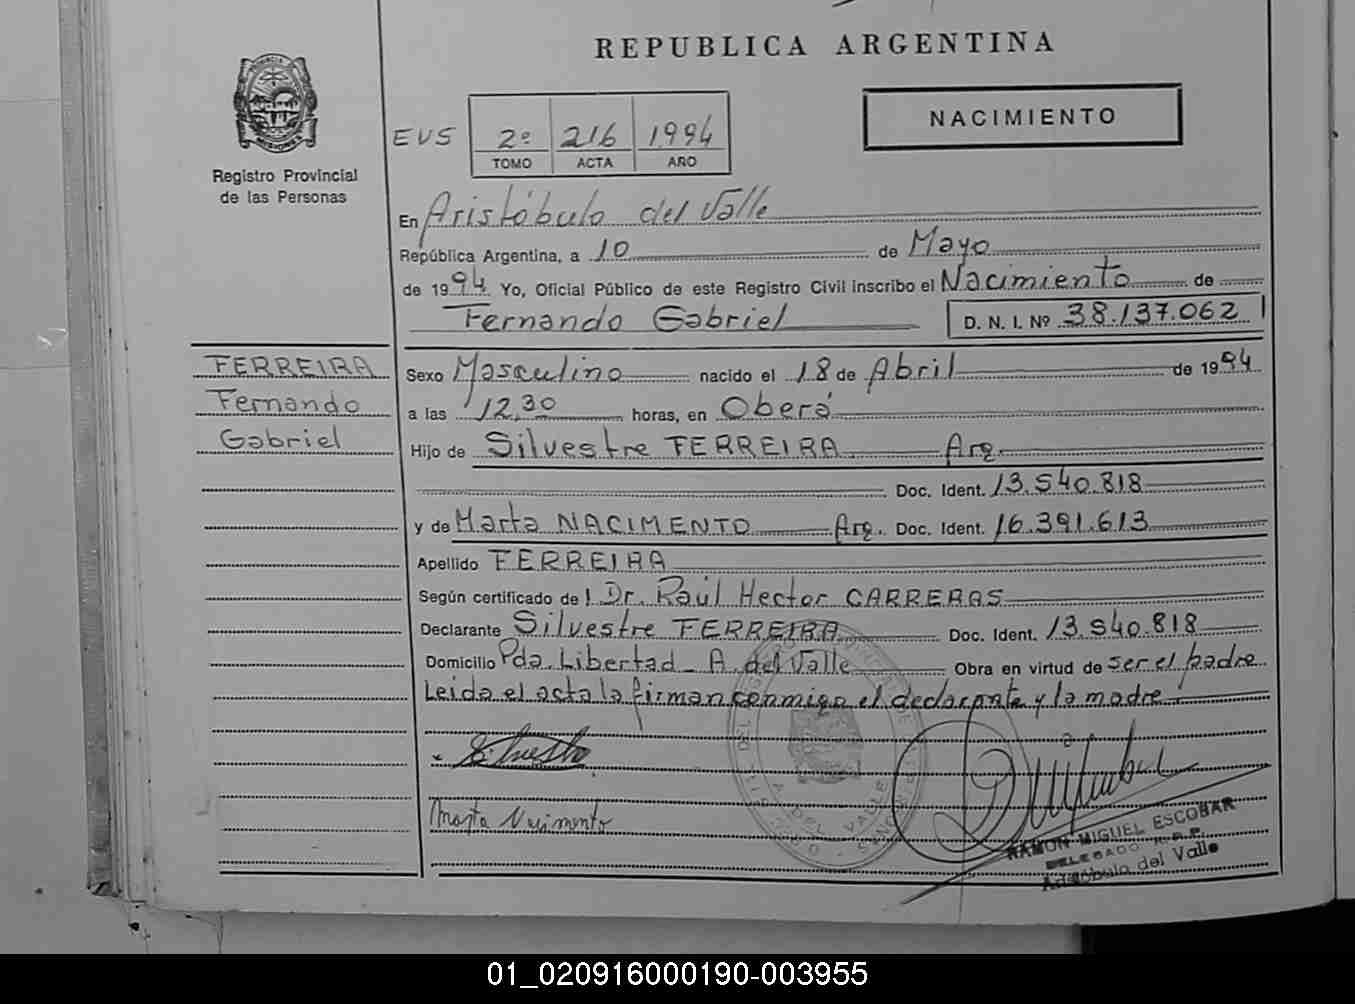 REPUBLICA ARGENTINA
NACIMIENTO
EVS 2º 216 1994
TOMO ACTA AÑO
Registro Provincial
de las Personas
En Aristóbulo del Valle
República Argentina, a 10 de Mayo
de 1994 Yo, Oficial Público de este Registro Civil inscribo el Nacimiento de
Fernando Gabriel D. N. I. Nº 38.137.062
FERREIRA
Fernando
Gabriel
Sexo Masculino nacido el 18 de Abril de 1994
a las 12,30 horas, en Oberá
Hijo de Silvestre FERREIRA Arg.
Doc. Ident. 13.540.818
y de Marta NACIMENTO Arg. Doc. Ident. 16.391.613
Apellido FERREIRA
Según certificado de l Dr. Raúl Hector CARRERAS
Declarante Silvestre FERREIRA Doc. Ident. 13.540.818
Domicilio Pda. Libertad - A. del Valle Obra en virtud de ser el padre
Leida el acta la firman conmigo el declarante y la madre.
Silvestre
Marta Nacimento
RAMON MIGUEL ESCOBAR
DELEGADO R.P.P.
Aristóbulo del Valle
01_020916000190-003955